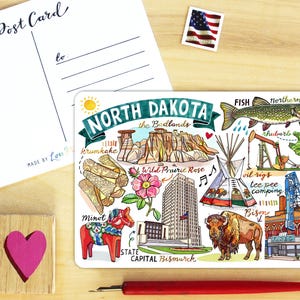 Post Card
to
MADE BY
NORTH DAKOTA
the Badlands
FISH
northern
rhubarb
Krumkake
Wild Prairie Rose
oil rigs
tee pee
camping
Minot
Bison
STATE
CAPITAL Bismarck